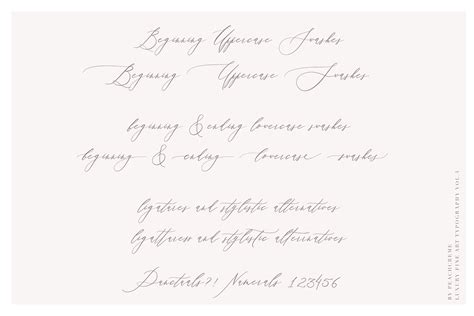 Beginning Uppercase Swashes
Beginning Uppercase Swashes
beginning & ending lowercase swashes
beginning & ending lowercase swashes
ligatures and stylistic alternatives
ligatures and stylistic alternatives
Punctuals?! Numerals 123456
BY PEACHCREME
LUXURY FINE ART TYPOGRAPHY VOL.4